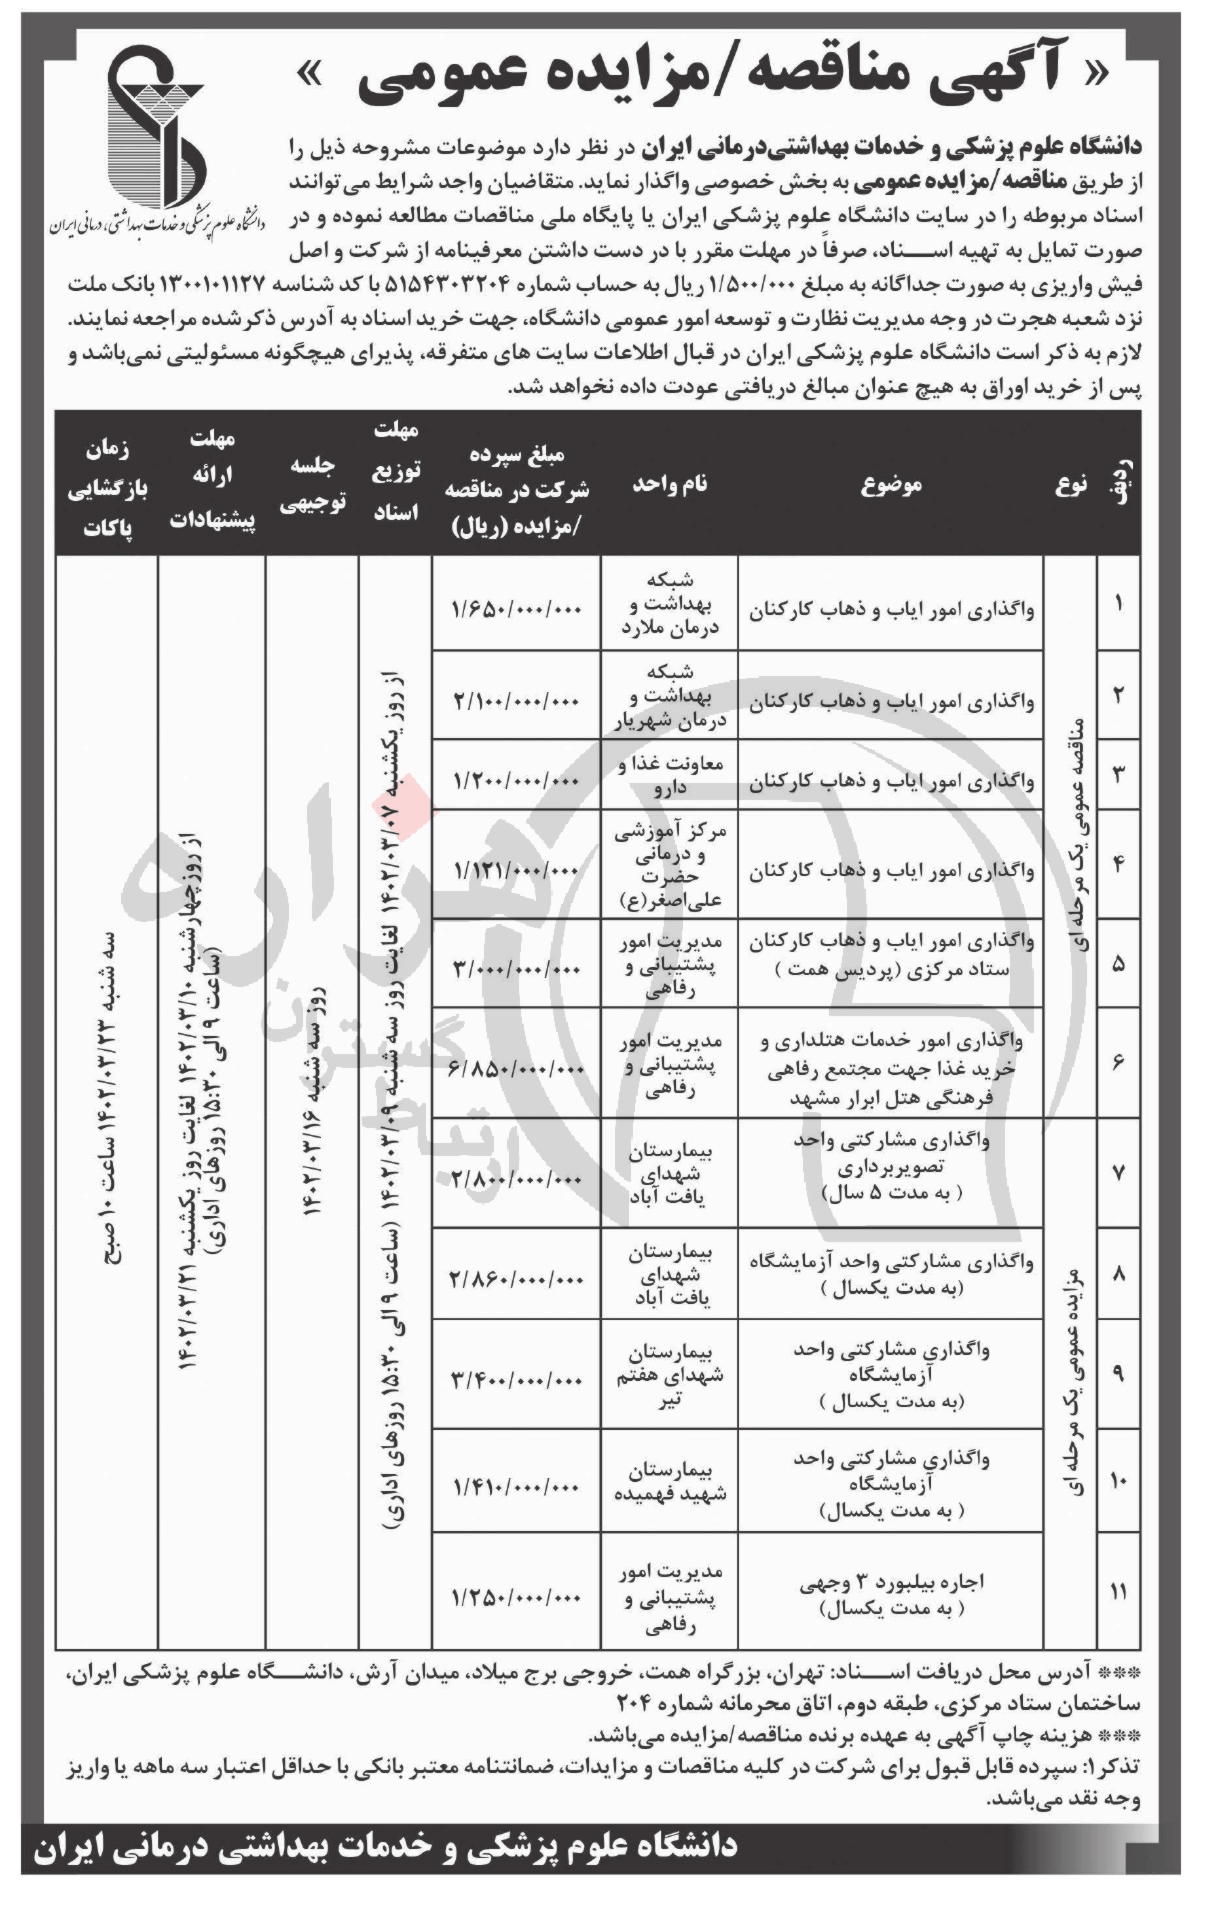 « آگهی مناقصه/مزایده عمومی »
دانشگاه علوم پزشکی و خدمات بهداشتی، درمانی ایران
دانشگاه علوم پزشکی و خدمات بهداشتی‌درمانی ایران در نظر دارد موضوعات مشروحه ذیل را
از طریق مناقصه/مزایده عمومی به بخش خصوصی واگذار نماید. متقاضیان واجد شرایط می‌توانند
اسناد مربوطه را در سایت دانشگاه علوم پزشکی ایران یا پایگاه ملی مناقصات مطالعه نموده و در
صورت تمایل به تهیه اسناد، صرفاً در مهلت مقرر با در دست داشتن معرفینامه از شرکت و اصل
فیش واریزی به صورت جداگانه به مبلغ ۱/۵۰۰/۰۰۰ ریال به حساب شماره ۵۱۵۴۳۰۳۲۰۴ با کد شناسه ۱۳۰۰۱۰۱۱۲۷ بانک ملت
نزد شعبه هجرت در وجه مدیریت نظارت و توسعه امور عمومی دانشگاه، جهت خرید اسناد به آدرس ذکرشده مراجعه نمایند.
لازم به ذکر است دانشگاه علوم پزشکی ایران در قبال اطلاعات سایت های متفرقه، پذیرای هیچگونه مسئولیتی نمی‌باشد و
پس از خرید اوراق به هیچ عنوان مبالغ دریافتی عودت داده نخواهد شد.
ردیف
نوع
موضوع
نام واحد
مبلغ سپرده
شرکت در مناقصه
/مزایده (ریال)
مهلت
توزیع
اسناد
جلسه
توجیهی
مهلت
ارائه
پیشنهادات
زمان
بازگشایی
پاکات
۱
مناقصه عمومی یک مرحله ای
واگذاری امور ایاب و ذهاب کارکنان
شبکه
بهداشت و
درمان ملارد
۱/۶۵۰/۰۰۰/۰۰۰
از روز یکشنبه ۱۴۰۲/۰۳/۰۷ لغایت روز سه شنبه ۱۴۰۲/۰۳/۰۹ (ساعت ۹ الی ۱۵:۳۰ روزهای اداری)
روز سه شنبه ۱۴۰۲/۰۳/۱۶
از روز چهارشنبه ۱۴۰۲/۰۳/۱۰ لغایت روز یکشنبه ۱۴۰۲/۰۳/۲۱
(ساعت ۹ الی ۱۵:۳۰ روزهای اداری)
سه شنبه ۱۴۰۲/۰۳/۲۳ ساعت ۱۰ صبح
۲
واگذاری امور ایاب و ذهاب کارکنان
شبکه
بهداشت و
درمان شهریار
۲/۱۰۰/۰۰۰/۰۰۰
۳
واگذاری امور ایاب و ذهاب کارکنان
معاونت غذا و
دارو
۱/۲۰۰/۰۰۰/۰۰۰
۴
واگذاری امور ایاب و ذهاب کارکنان
مرکز آموزشی
و درمانی
حضرت
علی‌اصغر(ع)
۱/۱۲۱/۰۰۰/۰۰۰
۵
واگذاری امور ایاب و ذهاب کارکنان
ستاد مرکزی (پردیس همت )
مدیریت امور
پشتیبانی و
رفاهی
۳/۰۰۰/۰۰۰/۰۰۰
۶
واگذاری امور خدمات هتلداری و
خرید غذا جهت مجتمع رفاهی
فرهنگی هتل ابرار مشهد
مدیریت امور
پشتیبانی و
رفاهی
۶/۸۵۰/۰۰۰/۰۰۰
۷
مزایده عمومی یک مرحله ای
واگذاری مشارکتی واحد
تصویربرداری
( به مدت ۵ سال)
بیمارستان
شهدای
یافت آباد
۲/۸۰۰/۰۰۰/۰۰۰
۸
واگذاری مشارکتی واحد آزمایشگاه
(به مدت یکسال )
بیمارستان
شهدای
یافت آباد
۲/۸۶۰/۰۰۰/۰۰۰
۹
واگذاری مشارکتی واحد
آزمایشگاه
(به مدت یکسال )
بیمارستان
شهدای هفتم
تیر
۳/۴۰۰/۰۰۰/۰۰۰
۱۰
واگذاری مشارکتی واحد
آزمایشگاه
( به مدت یکسال)
بیمارستان
شهید فهمیده
۱/۴۱۰/۰۰۰/۰۰۰
۱۱
اجاره بیلبورد ۳ وجهی
( به مدت یکسال)
مدیریت امور
پشتیبانی و
رفاهی
۱/۲۵۰/۰۰۰/۰۰۰
هزاره
گستران
ارتباط
*** آدرس محل دریافت اسناد: تهران، بزرگراه همت، خروجی برج میلاد، میدان آرش، دانشگاه علوم پزشکی ایران،
ساختمان ستاد مرکزی، طبقه دوم، اتاق محرمانه شماره ۲۰۴
*** هزینه چاپ آگهی به عهده برنده مناقصه/مزایده می‌باشد.
تذکر۱: سپرده قابل قبول برای شرکت در کلیه مناقصات و مزایدات، ضمانتنامه معتبر بانکی با حداقل اعتبار سه ماهه یا واریز
وجه نقد می‌باشد.
دانشگاه علوم پزشکی و خدمات بهداشتی درمانی ایران